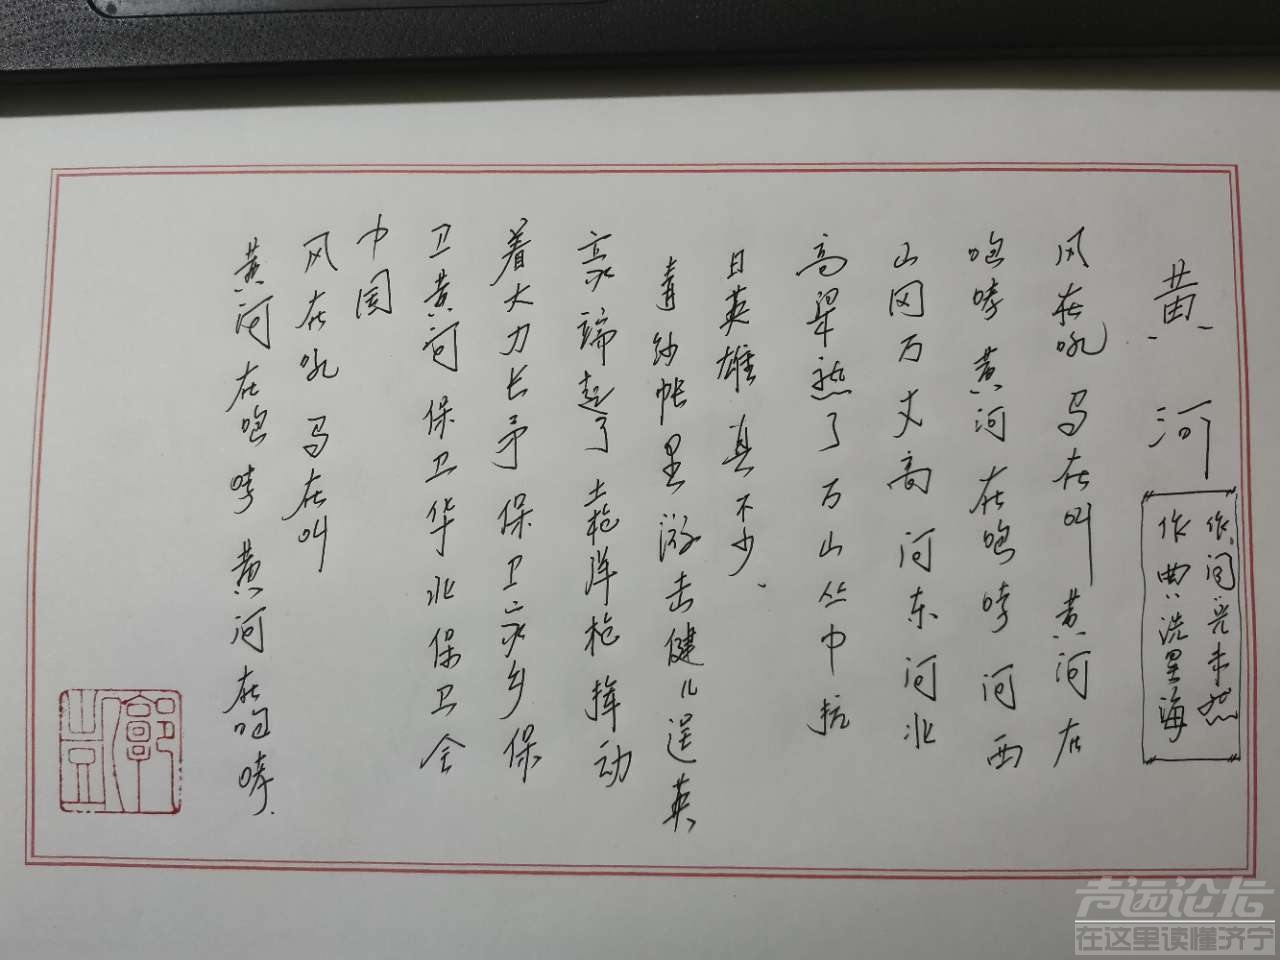 黄河
作词光未然
作曲洗星海
风在吼 马在叫 黄河在
咆哮 黄河在咆哮 河西
山冈万丈高 河东河北
高梁熟了万山丛中抗
日英雄真不少.
青纱帐里游击健儿逞英
豪端起了土枪洋枪挥动
着大刀长矛保卫家乡保
卫黄河保卫华北保卫全
中国
风在吼 马在叫
黄河在咆哮 黄河在咆哮.
声远论坛
在这里读懂济宁